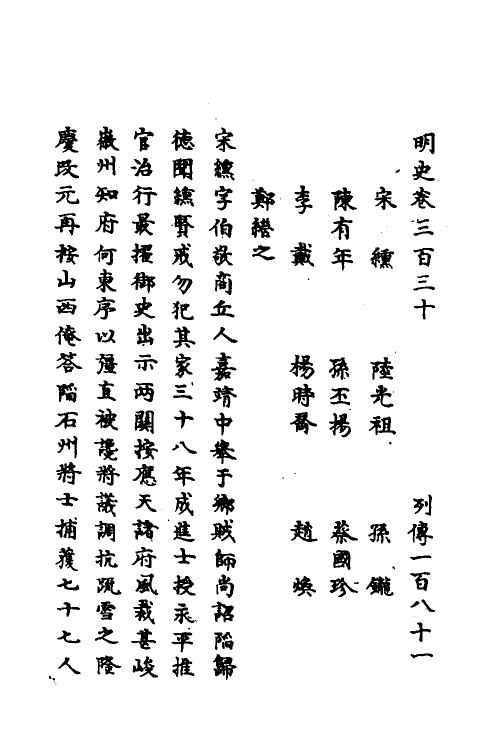 明史卷三百三十 列傳一百八十一
宋纁 陸光祖 孫鑨
陳有年 孫丕揚 蔡國珍
李戴 楊時喬 趙煥
鄭繼之
宋纁字伯敬商丘人嘉靖中舉于鄉賊師尚詔陷歸
德聞纁賢戒勿犯其家三十八年成進士授永平推
官治行最擢御史出示兩關按應天諸府風裁甚峻
徽州知府何東序以彊直被讒將議調抗疏雪之隆
慶改元再按山西俺答陷石州將士捕獲七十七人